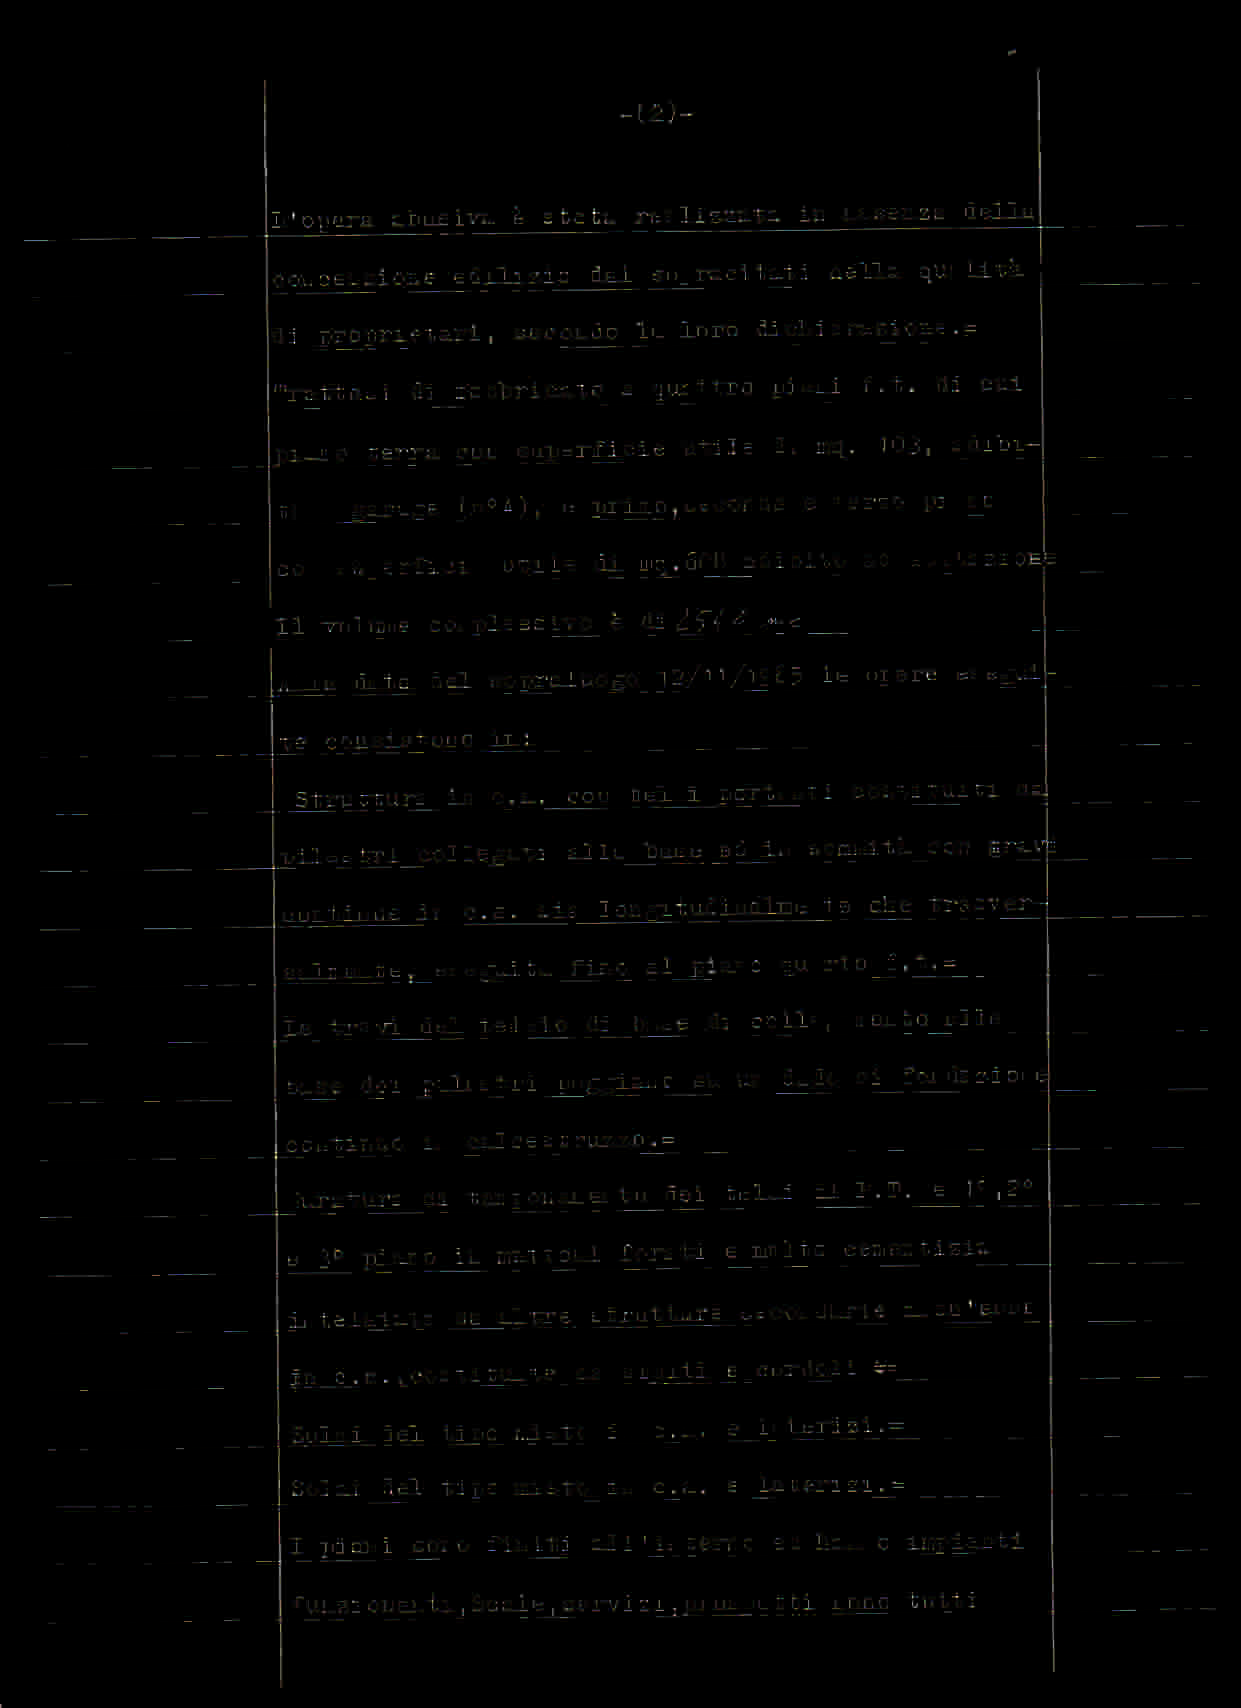 -(2)-
L'opera abusiva è stata realizzata in assenza della
concessione edilizia dai sopracitati nella qualità
di proprietari, secondo la loro dichiarazione.=
Trattasi di fabbricato a quattro piani f.t. di cui
piano terra con superficie utile di mq. 103, adibi-
garage (n°4), e primo,secondo e terzo piano
con superficie utile di mq. adibito ad abitazione
Il volume complessivo è di
Alla data del sopraluogo 12/11/1985 le opere esegui-
te consistono in:
Struttura in c.a. con telai portanti costituiti da
pilastri collegati alla base ed in sommità con travi
continue in c.a. sia longitudinalmente che trasver-
salmente, eseguita fino al piano quarto f.t.=
Le travi del telaio di base di colle, sotto alla
base dei pilastri poggiano su un dado di fondazione
continuo in calcestruzzo.=
Muratura di tamponamento dei telai al P.T. e 1°,2°
e 3° piano in mattoni forati e malta cementizia
intelaiata da altre strutture secondarie anch'esse
in c.a.,costituite da e cordoli =
Solai del tipo misto in c.a. e laterizi.=
Solai del tipo misto in c.a. e laterizi.=
I piani sono finiti all'interno ed hanno impianti
funzionanti,Scale,servizi, sono tutti